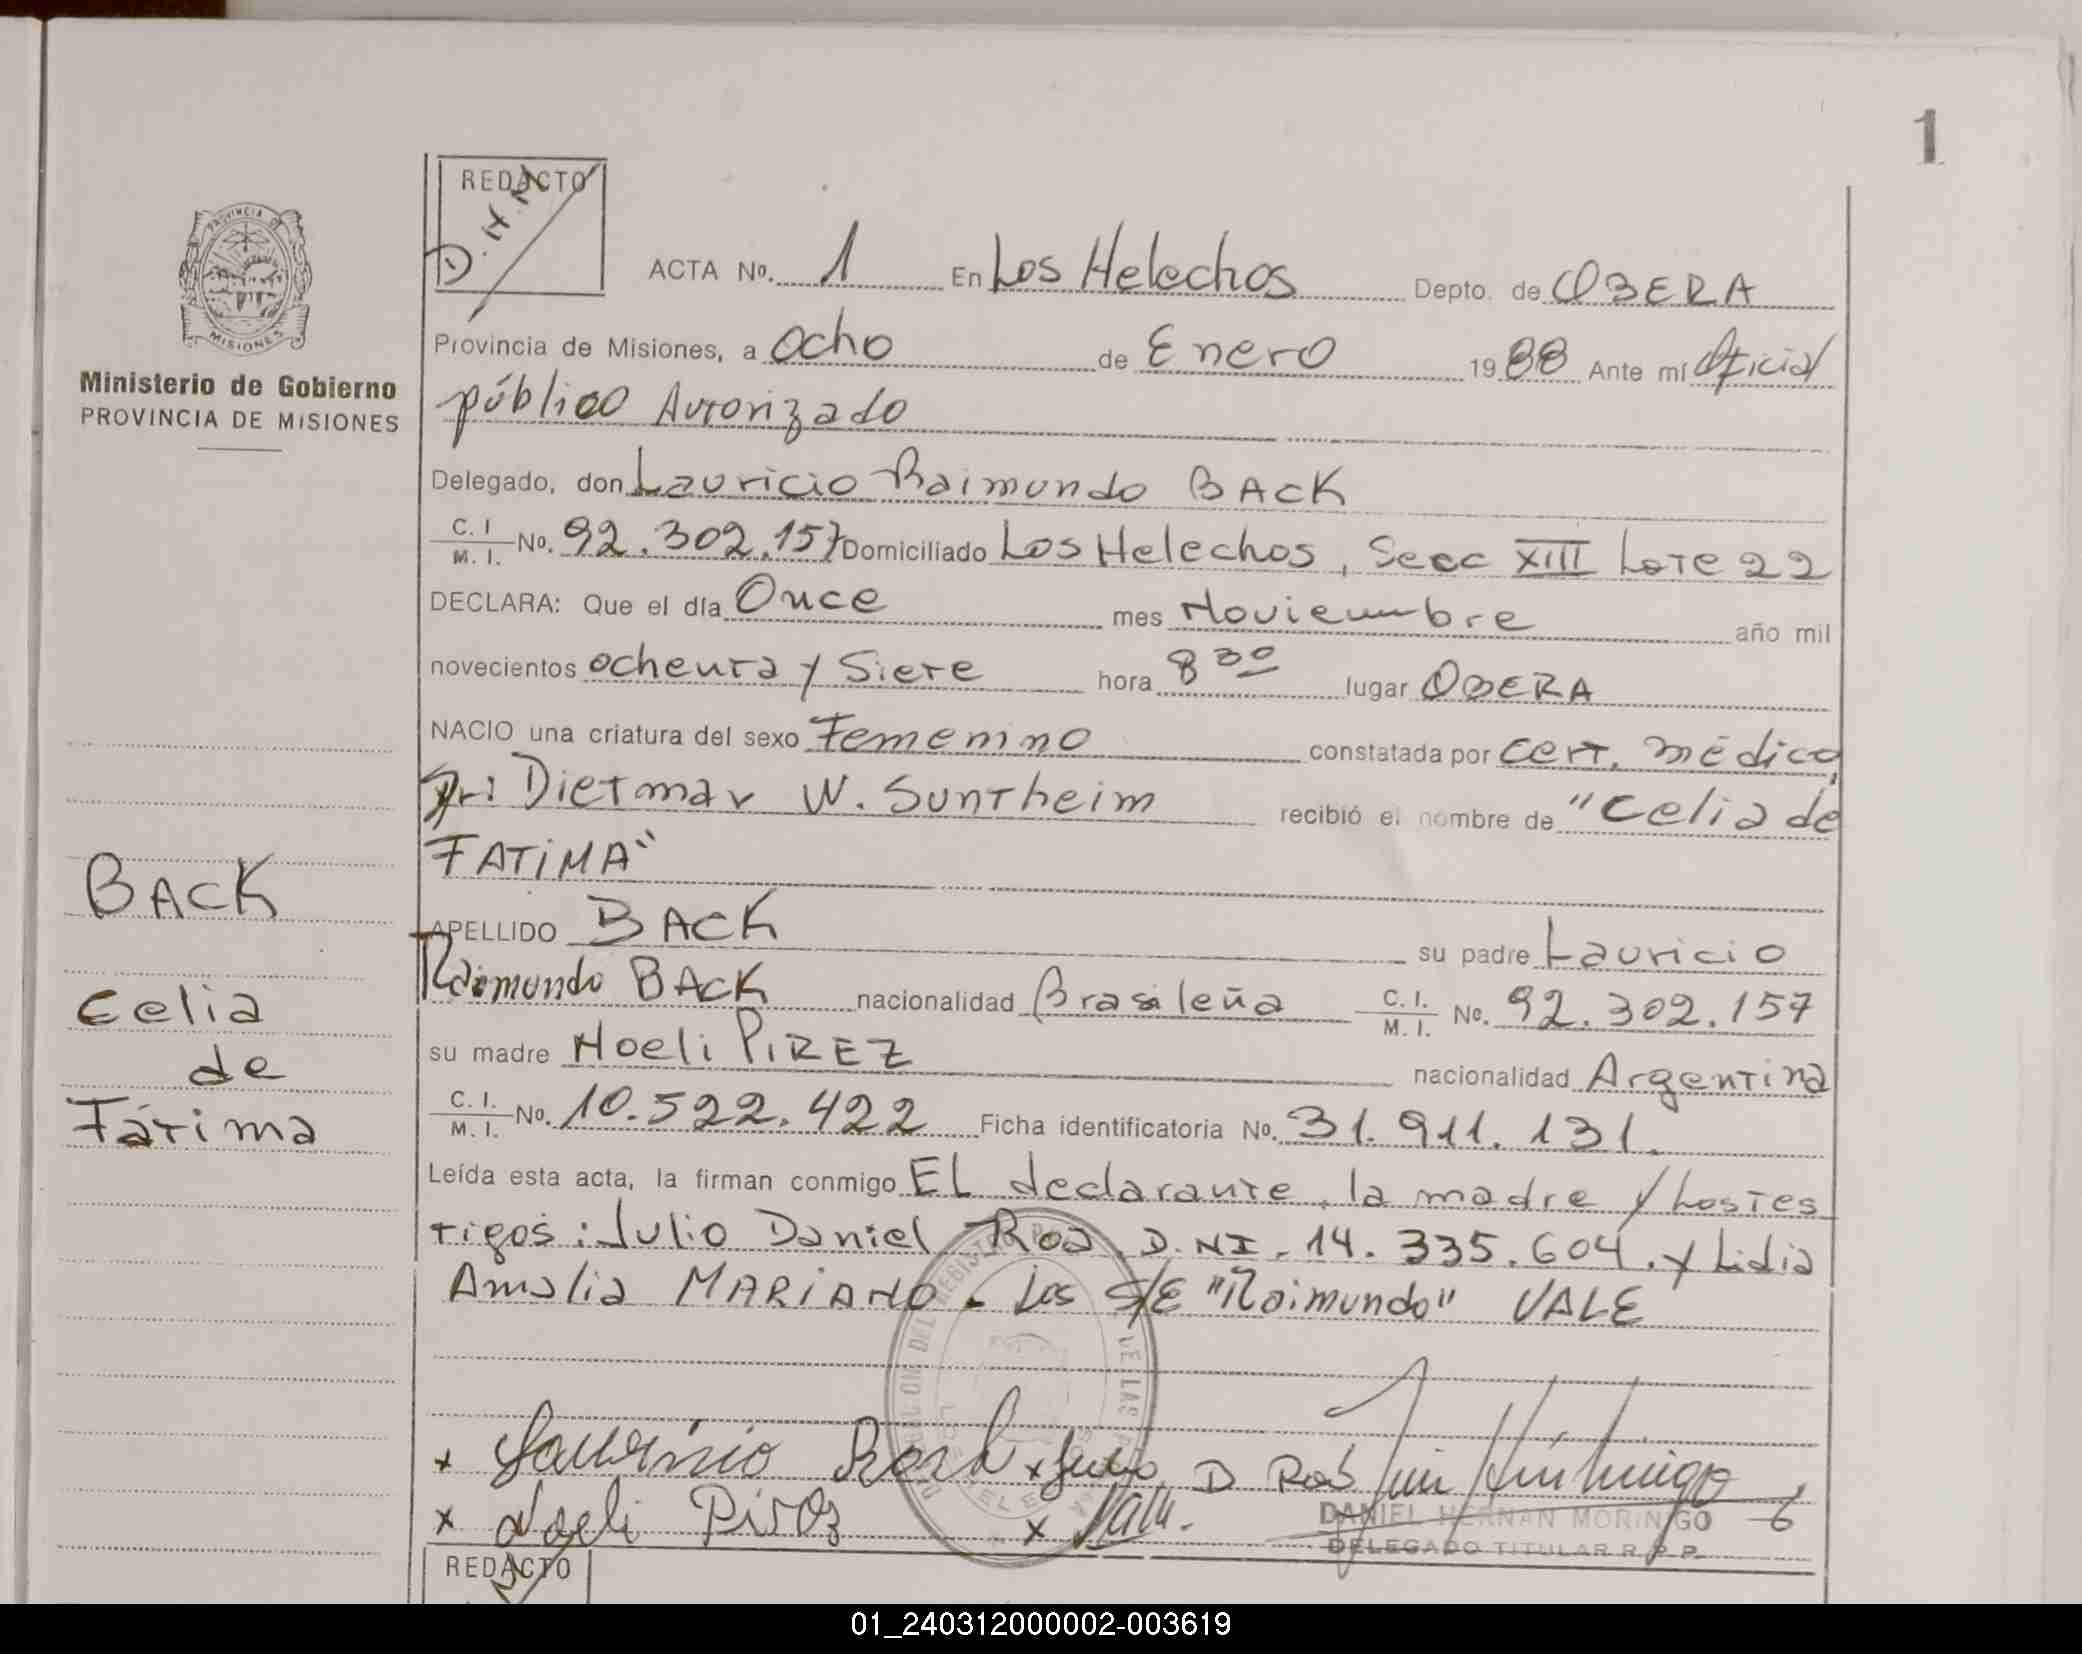 1
REDACTO
D.H.M
ACTA No. 1 En Los Helechos Depto. de OBERA
Provincia de Misiones, a ocho de Enero 1988 Ante mí Oficial
público Autorizado
PROVINCIA DE
MISIONES
Ministerio de Gobierno
PROVINCIA DE MISIONES
Delegado, don Lauricio Raimundo BACK
C. I. / M. I. No. 92.302.157 Domiciliado Los Helechos, Secc XIII Lote 22
DECLARA: Que el día Once mes Noviembre año mil
novecientos ochenta y Siete hora 8 30 lugar OBERA
NACIO una criatura del sexo Femenino constatada por cert. médico,
Dr: Dietmar W. Suntheim recibió el nombre de "Celia de
FATIMA"
APELLIDO BACK su padre Lauricio
Raimundo BACK nacionalidad Brasileña C. I. / M. I. No. 92.302.157
su madre Noeli PIREZ nacionalidad Argentina
C. I. / M. I. No. 10.522.422 Ficha identificatoria No. 31.911.131.
Leída esta acta, la firman conmigo EL declarante, la madre y Los Tes
tigos: Julio Daniel Roa, D.NI. 14.335.604. y Lidia
Amalia MARIANO. Los S/E "Raimundo" VALE
BACK
Celia
de
Fátima
x Lauricio Back x Julio D Roa
x Noeli Pirez x
DANIEL HERNAN MORINIGO
DELEGADO TITULAR R.P.P.
REDACTO
01_240312000002-003619